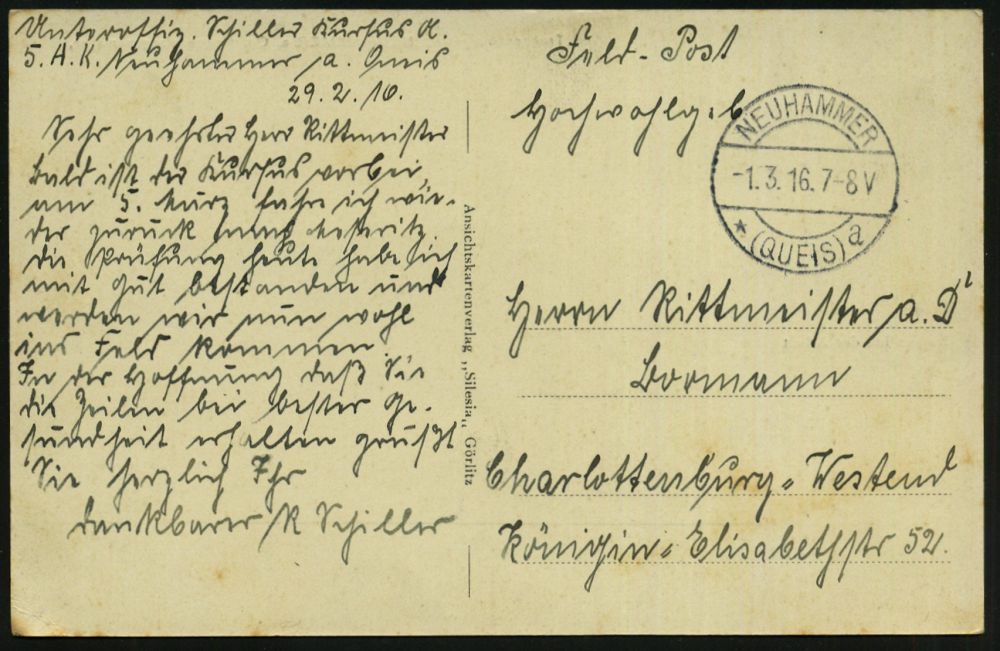 Unteroffiz. Schiller Kursus A.
5. A.K. Neuhammer a. Queis
29.2.16.
Sehr geehrter Herr Rittmeister
Bald ist der Kursus vorbei,
am 5. März fahre ich wie-
der zurück nach
die Prüfung heute habe ich
mit gut bestanden und
werden wir nun wohl
ins Feld kommen
In der Hoffnung daß Sie
die Zeilen bei bester Ge-
sundheit erhalten grüßt
Sie herzlich Ihr
dankbarer R Schiller
Ansichtskartenverlag „Silesia„ Görlitz
Feld-Post
Hochwohlgeb
NEUHAMMER
-1.3.16.7-8V
* (QUEIS) a
Herrn Rittmeister a. D
Bormann
Charlottenburg-Westend
Königin-Elisabethstr 52.